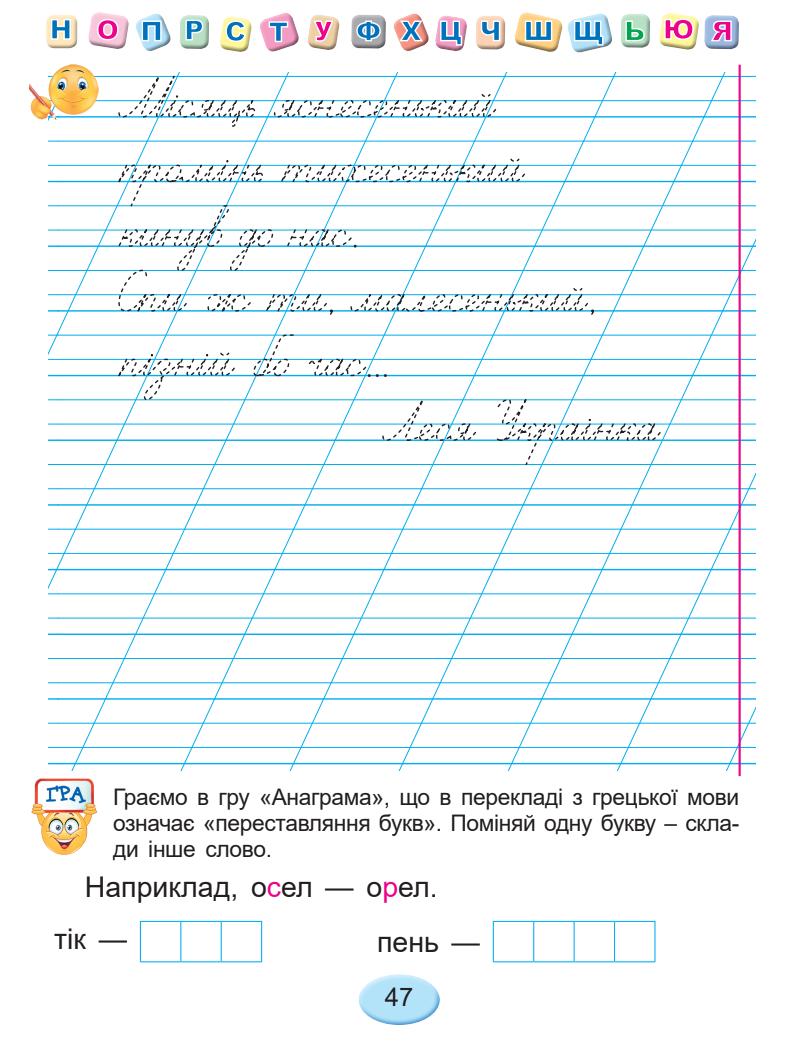 Н О П Р С Т У Ф Х Ц Ч Ш Щ Ь Ю Я
Місяць яснесенький
промінь тихесенький
кинув до нас.
Спи ж ти, малесенький,
пізній бо час...
Леся Українка
ГРА
Граємо в гру «Анаграма», що в перекладі з грецької мови
означає «переставляння букв». Поміняй одну букву – скла-
ди інше слово.
Наприклад, осел — орел.
тік — пень —
47